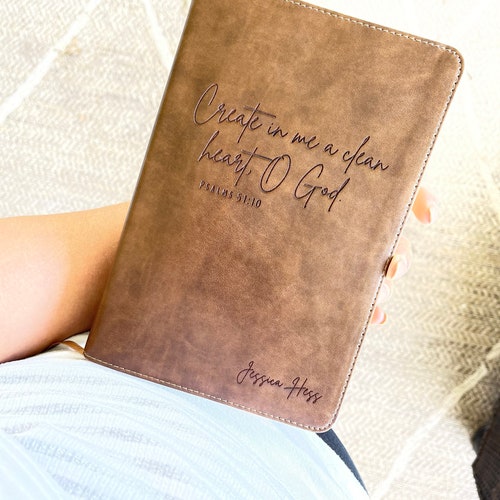 Create in me a clean
heart, O God.
PSALMS 51:10
Jessica Hess